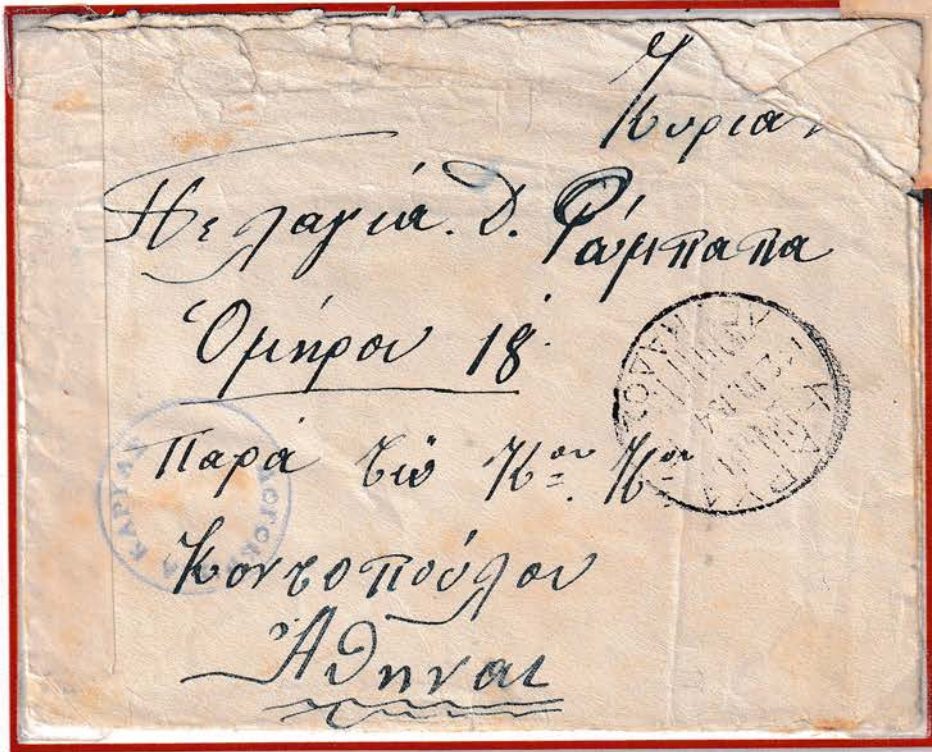 Κυρίαν
Πελαγία. Δ. Ράμπαπα
Ὁμήρου 18
Παρὰ τῷ Κον Κον
Κοντοπούλου
Ἀθήναι
ΚΑΡΥΑΙ